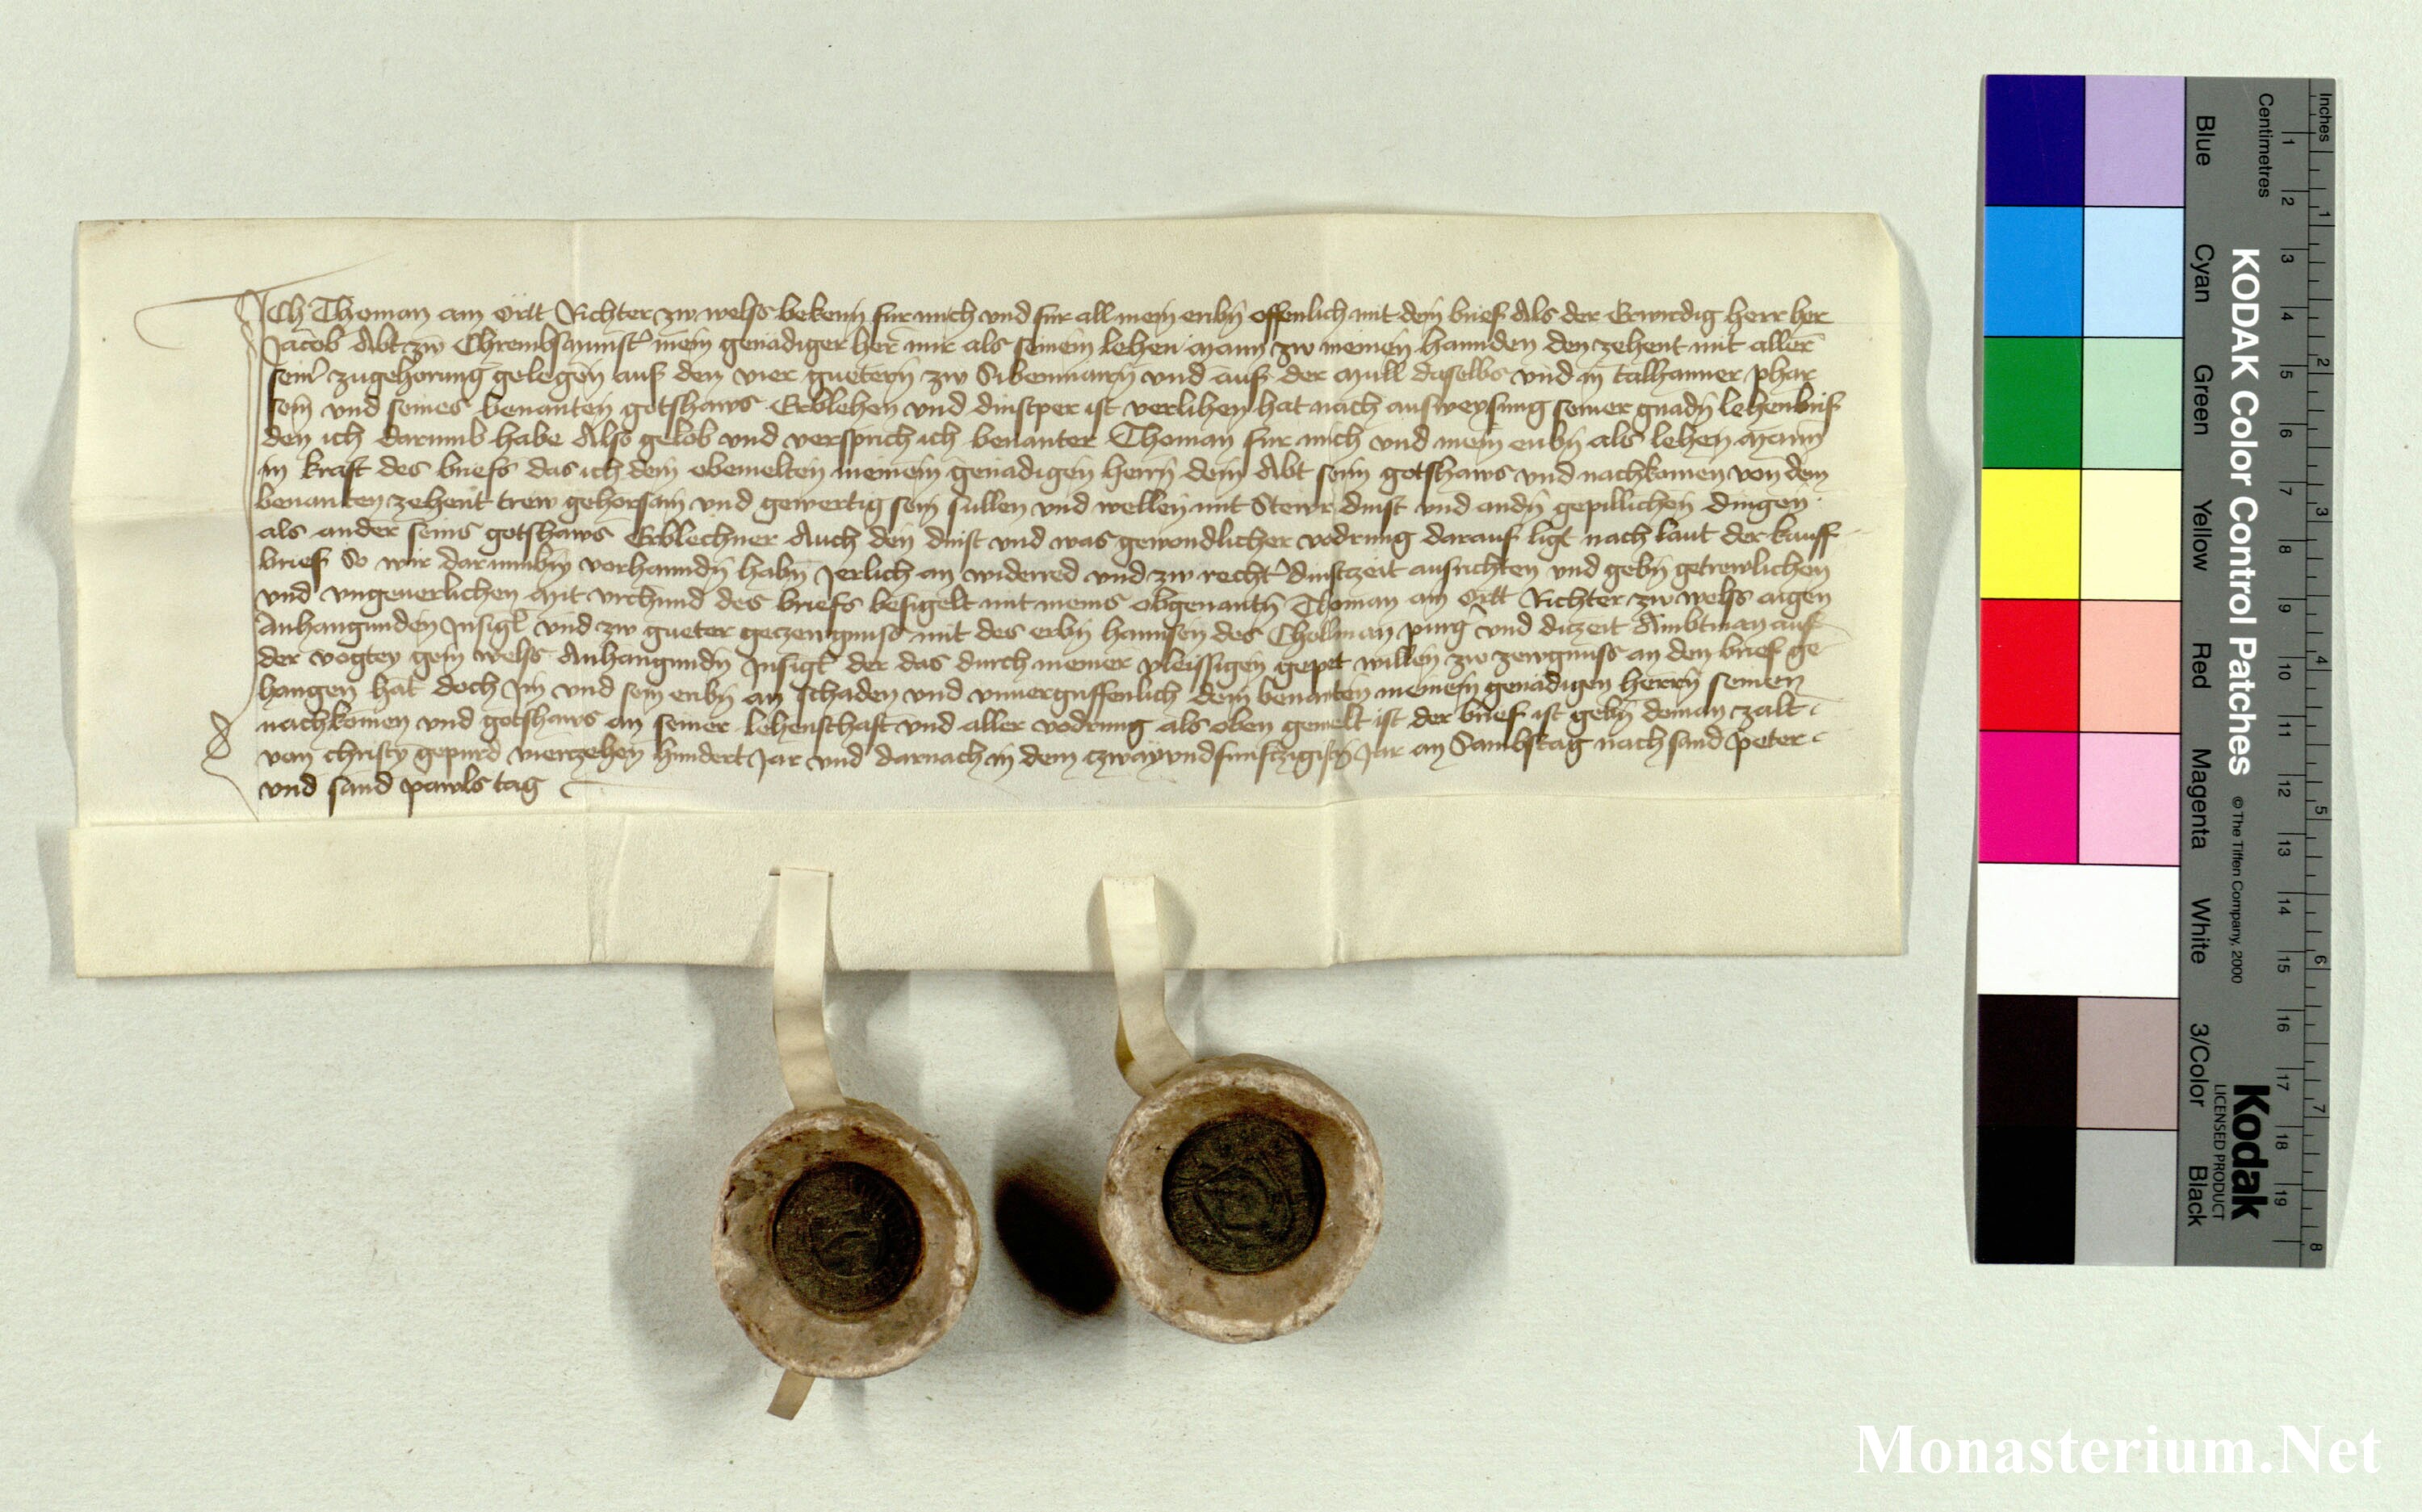 Ich Thoman am Ortt Richter zw wels bekenn fur mich vnd fur all mein erbn offenlich mit dem brief Als der Erwirdig herr her
Jacob Abt zw Chrembsmunst mein genadiger her mir als seinem lehen mann zw meinen hannden den zehent mit aller
seinr zugehorung gelegen auf den vier guetern zw Sibenmarn vnd auf der Mull daselbs vnd in talhaimer phar
sein vnd seines benanten gotshaws Erblehen vnd dinstper ist verlihen hat nach ausweysung seiner gnadn lehenbrif
den ich darumb habe Also gelob vnd versprich ich benanter Thoman fur mich vnd mein erbn als lehen mann
in kraft des briefs das ich dem obemelten meinem genadigen herrn dem Abt seim gotshaws vnd nachkomen von dem
benanten zehent trew gehorsam vnd gewertig sein sullen vnd wellen mit Stewr dinst vnd andn gepillichen dingen
als ander seins gotshaws Erblechner Auch den dinst vnd was gewondlicher vodrung darauf ligt nach laut der kauff
brief So wir darumbn vorhanndn habn Jerlich an widerred vnd zw recht dinstzeit ausrichten vnd gebn getrewlichen
vnd vngeuerlichen Mit vrchund des briefs besigelt mit meins obgenantn Thoman am Ortt Richter zw wels aigen
Anhangunden Insigl vnd zw gueter geczewgnuss mit des erbn hannsen des Chollman purg vnd diczeit Ambtman auf
der vogtey gein wels Anhangundn Insigl der das durch meiner vleissigen gepet willen zw zewgnuss an den brief ge
hangen hat doch Im vnd sein erbn an schaden vnd vnuergriffenlich dem benanten meinem genadigen herrn seinen
nachkomen vnd gotshaws an seiner lehenschaft vnd aller vodrung als oben gemelt ist der brief ist gebn do man zalt
von christy gepurd vierczehen hundert Jar vnd darnach in dem czwayvndfunfczigistn Jar an Sambstag nach sand Peter
vnd sand pawls tag
Inches
Centimetres
KODAK Color Control Patches © The Tiffen Company, 2000
Kodak
LICENSED PRODUCT
Blue Cyan Green Yellow Red Magenta White 3/Color Black
1 2 3 4 5 6 7 8 9 10 11 12 13 14 15 16 17 18 19
1 2 3 4 5 6 7 8
Monasterium.Net